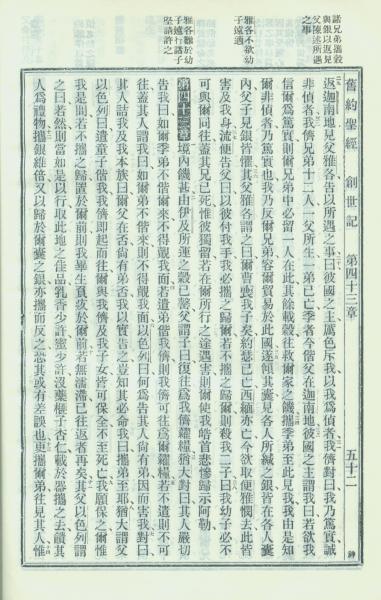 諸兄弟攜穀
與銀以返見
父陳述所遇
之事
雅各不欲幼
子遠適
雅各難於幼
子遠行諸子
堅請許之
舊約聖經 創世記 第四十三章 五十二 神
返迦南地見父雅各告以所遇之事曰彼國之主厲色斥我以我為偵者我儕對曰我乃篤實誠
非偵者我儕兄弟十二人一父所生一弟已亡季者今偕父在迦南地彼國之主謂我曰若欲我
信爾為篤實則爾兄弟中必留一人在此其餘載穀往救爾家之饑攜季弟至此見我我由是知
爾非偵者乃篤實也我乃反爾兄弟容爾貿易於此國遂傾其囊見各人所緘之銀皆在各人囊
內父子見銀皆懼其父雅各謂之曰爾曹喪我子矣約瑟已亡西緬亦亡今欲取便雅憫去此皆
害及我身流便告父曰以彼付我手我必攜之歸爾若不攜之歸則殺我二子曰我幼子必不
可與爾同往蓋其兄已死惟彼獨留若在爾所行之途遇害則爾使我皓首悲慘歸示阿勒
第四十三章 境內饑甚由伊及所運之穀已罄父謂子曰復往為我儕糴糧猶大對曰其人嚴切
告我曰如爾季弟不偕爾來不得覿我面若遣弟偕我儕則我儕可往為爾糴糧若不遣則不可
往蓋其人謂我曰如爾弟不偕來則不得覿我面以色列曰何為告其人尚有弟因而害我對曰
其人詰我及我本族曰爾父在否尚有弟否我以實告之豈知其必命我曰攜弟至耶猶大謂父
以色列曰請遣童子偕我我儕即起而往爾與我儕及我子女皆可保全不至死亡我願保之爾惟
我是問若不攜之歸置於爾前則我畢生負疚於爾前若無濡滯已往返者再矣其父以色列謂
之曰若然則當如是以行取此地之佳品乳香少許蜜少許沒藥榧子杏仁載於器攜之去饋其
人為禮物攜銀維倍又以歸於爾囊之銀亦攜而反之恐其或有差誤也更攜爾弟往見其人惟